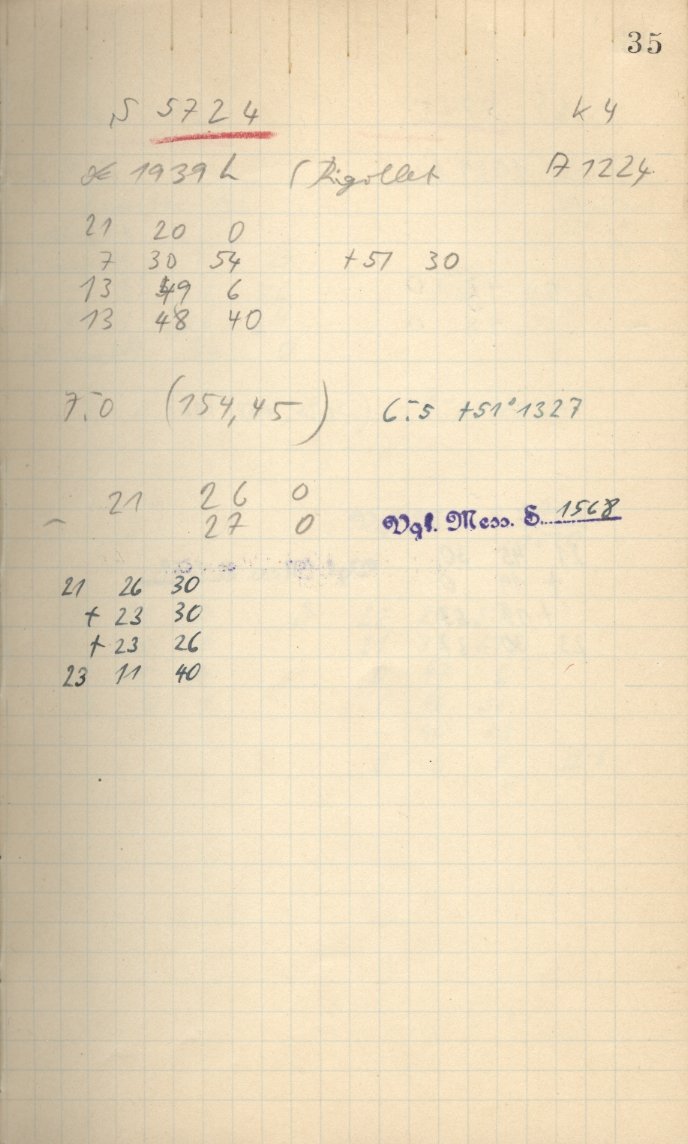 35
S 5724 K 4
☄ 1939 h (Rigollet A 1224
21 20 0
7 30 54 +51 30
13 49 6
13 48 40
7.0 (154,45) 6.5 +51°1327
21 26 0
27 0 Vgl. Mess. S. 1568
21 26 30
+ 23 30
+ 23 26
23 11 40